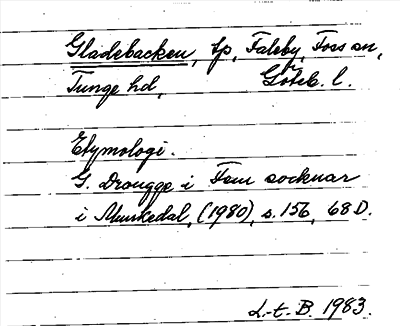 Gladebacken, tp, Faleby, Foss sn,
Tunge hd, Göteb. l.
Etymologi.
G. Drougge i Fem socknar
i Munkedal, (1980), s. 156, 68D.
L-t. B. 1983.